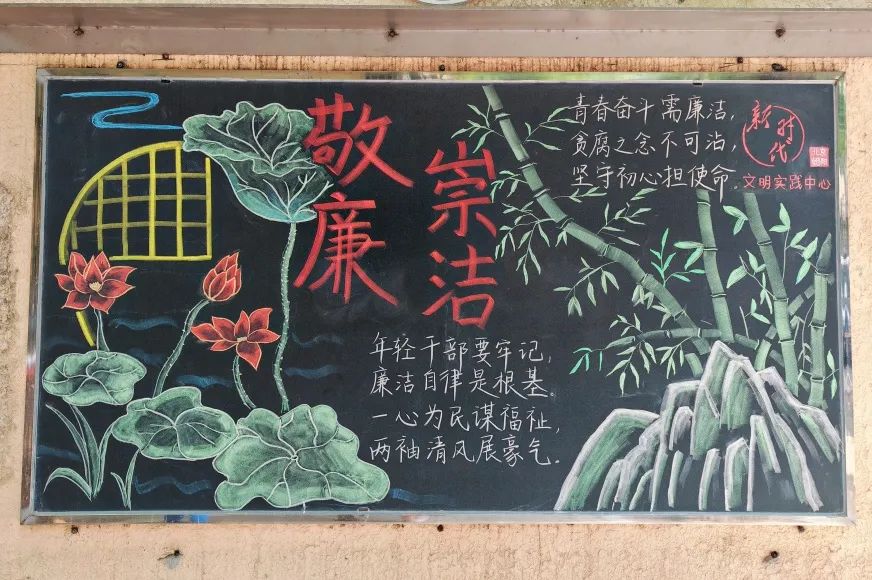 敬廉
崇洁
青春奋斗需廉洁，
贪腐之念不可沾，
坚守初心担使命。
新时代
文明实践中心
年轻干部要牢记，
廉洁自律是根基。
一心为民谋福祉，
两袖清风展豪气。